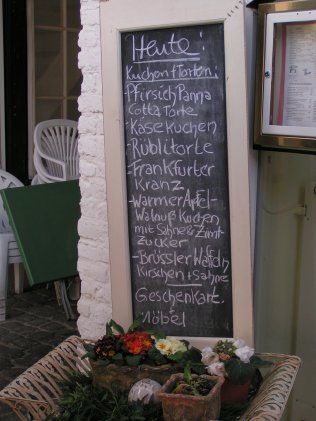 Heute:
Kuchen + Torten:
Pfirsich Panna
Cotta Torte
-Käsekuchen
-Rüblitorte
-Frankfurter
Kranz
-Warmer Apfel-
Walnuß Kuchen
mit Sahne & Zimt-
zucker
-Brüssler Waffeln
Kirschen + Sahne
Geschenkart.
Möbel